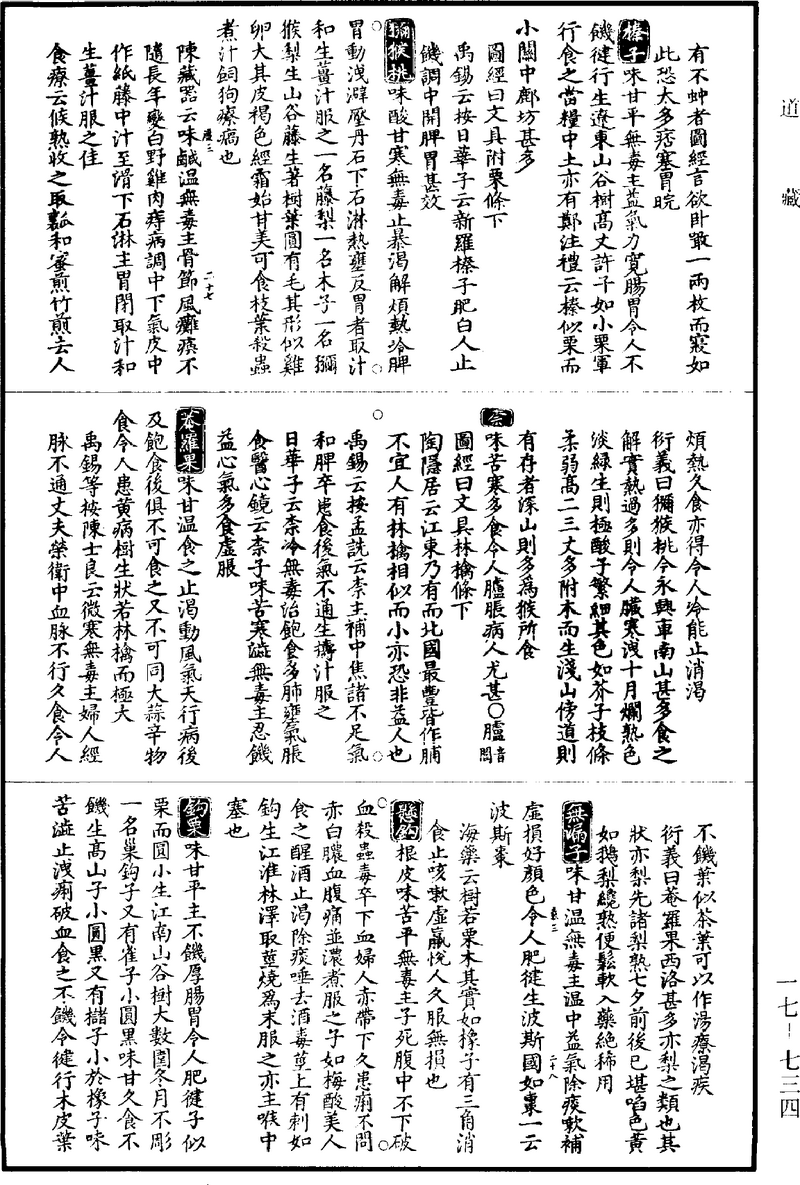 道藏
有不蚛者圖經言欲卧嚼一兩枚而寢如
此恐太多痞塞胃脘
榛子味甘平無毒主益氣力寬腸胃令人不
饑徤行生遼東山谷樹高丈許子如小栗軍
行食之當糧中土亦有鄭注禮云榛似栗而
小關中鄜坊甚多
圖經曰文具附栗條下
禹錫云按日華子云新羅榛子肥白人止
饑調中開脾胃甚效
獼猴桃味酸甘寒無毒止暴渴解煩熱冷脾
胃動洩澼壓丹石下石淋熱壅反胃者取汁
和生薑汁服之一名藤梨一名木子一名獼
猴梨生山谷藤生著樹葉圓有毛其形似雞
卵大其皮褐色經霜始甘美可食枝葉殺蟲
煮汁飼狗療瘑也
陳藏器云味鹹溫無毒主骨節風癱瘓不
隨長年變白野雞肉痔病調中下氣皮中
作紙藤中汁至滑下石淋主胃閉取汁和
生薑汁服之佳
食療云候熟收之取瓤和蜜煎竹煎去人
煩熱久食亦得令人冷能止消渴
衍義曰獼猴桃今永興軍南山甚多食之
解實熱過多則令人臟寒洩十月爛熟色
淡綠生則極酸子繁細其色如芥子枝條
柔弱高二三丈多附木而生淺山傍道則
有存者深山則多爲猴所食
柰味苦寒多食令人臚脹病人尤甚〇臚音閭
圖經曰文具林檎條下
陶隱居云江東乃有而北國最豐皆作脯
不宜人有林檎相似而小亦恐非益人也
禹錫云按孟詵云柰主補中焦諸不足氣
和脾卒患食後氣不通生擣汁服之
日華子云柰冷無毒治飽食多肺壅氣脹
食醫心鏡云柰子味苦寒澁無毒主忍饑
益心氣多食虛脹
菴羅果味甘溫食之止渴動風氣天行病後
及飽食後俱不可食之又不可同大蒜辛物
食令人患黃病樹生狀若林檎而極大
禹錫等按陳士良云微寒無毒主婦人經
脉不通丈夫榮衛中血脉不行久食令人
不饑葉似茶葉可以作湯療渴疾
衍義曰菴羅果西洛甚多亦梨之類也其
狀亦梨先諸梨熟七夕前後已堪啗色黃
如鵝梨纔熟便鬆軟入藥絕稀用
無漏子味甘溫無毒主溫中益氣除痰嗽補
虛損好顏色令人肥徤生波斯國如棗一云
波斯棗
海藥云樹若栗木其實如橡子有三角消
食止咳嗽虛羸悅人久服無損也
懸鈎根皮味苦平無毒主子死腹中不下破
血殺蟲毒卒下血婦人赤帶下久患痢不問
赤白膿血腹痛並濃煮服之子如梅酸美人
食之醒酒止渴除痰唾去酒毒莖上有刺如
鈎生江淮林澤取莖燒爲末服之亦主喉中
塞也
鈎栗味甘平主不饑厚腸胃令人肥徤子似
栗而圓小生江南山谷樹大數圍冬月不彫
一名巢鈎子又有雀子小圓黑味甘久食不
饑生高山子小圓黑又有櫧子小於橡子味
苦澁止洩痢破血食之不饑令徤行木皮葉
一七-七三四